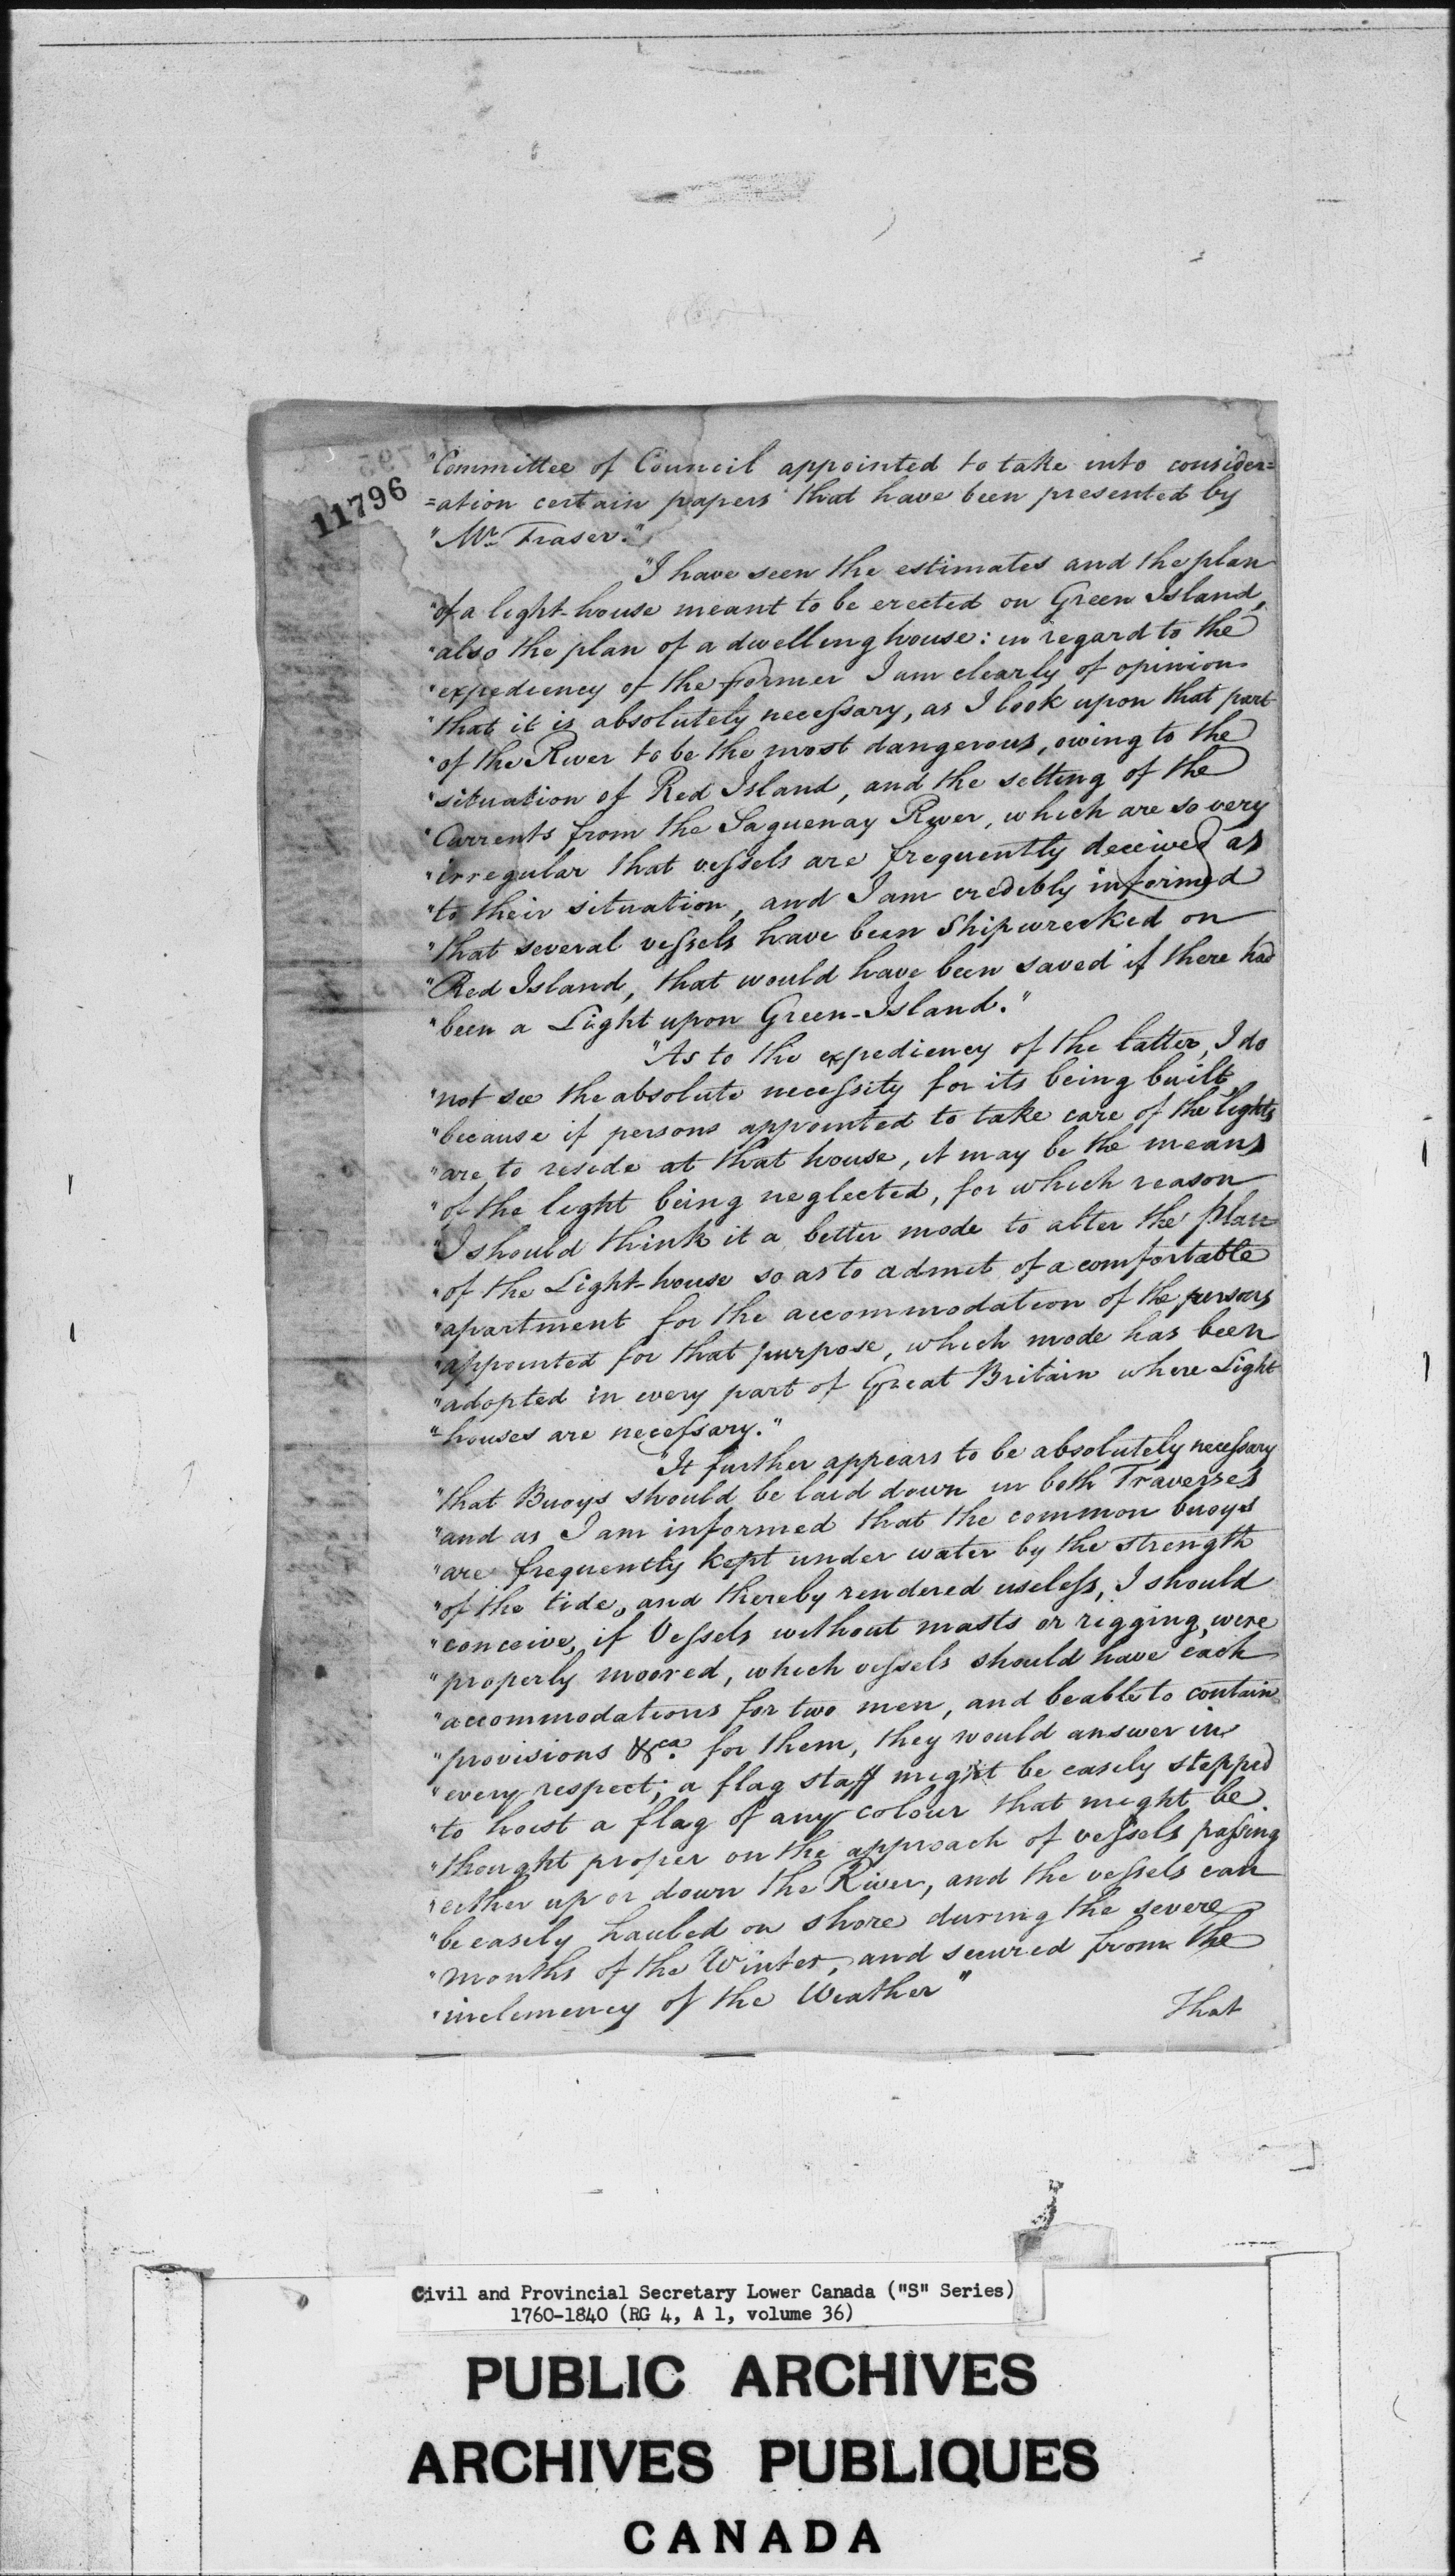 11796
"Committee of Council appointed to take into consider=
=ation certain papers that have been presented by
"Mr. Fraser."
"I have seen the estimates and the plan
"of a light-house meant to be erected on Green Island,
"also the plan of a dwelling house: in regard to the
"expediency of the former I am clearly of opinion
"that it is absolutely necessary, as I look upon that part
"of the River to be the most dangerous, owing to the
"situation of Red Island, and the setting of the
"Currents from the Saguenay River, which are so very
"irregular that vessels are frequently deceived as
"to their situation, and I am credibly informed
"that several vessels have been Shipwrecked on
"Red Island, that would have been saved if there had
"been a Light upon Green-Island."
"As to the expediency of the latter, I do
"not see the absolute necessity for its being built,
"because if persons appointed to take care of the lights
"are to reside at that house, it may be the means
"of the light being neglected, for which reason
"I should think it a better mode to alter the plan
"of the Light-house so as to admit of a comfortable
"apartment for the accommodation of the persons
"appointed for that purpose, which mode has been
"adopted in every part of Great Britain where Light
"-houses are necessary."
"It further appears to be absolutely necessary
"that Buoys should be laid down in both Traverses
"and as I am informed that the common buoys
"are frequently kept under water by the strength
"of the tide, and thereby rendered useless, I should
"conceive, if Vessels without masts or rigging, were
"properly moored, which vessels should have each
"accommodations for two men, and be able to contain
"provisions &ca. for them, they would answer in
"every respect; a flag staff might be easily stepped
"to hoist a flag of any colour that might be
"thought proper on the approach of vessels passing
"either up or down the River, and the vessels can
"be easily hauled on shore during the severe
"months of the Winter, and secured from the
"inclemency of the Weather"
That
Civil and Provincial Secretary Lower Canada ("S" Series)
1760-1840 (RG 4, A 1, volume 36)
PUBLIC ARCHIVES
ARCHIVES PUBLIQUES
CANADA